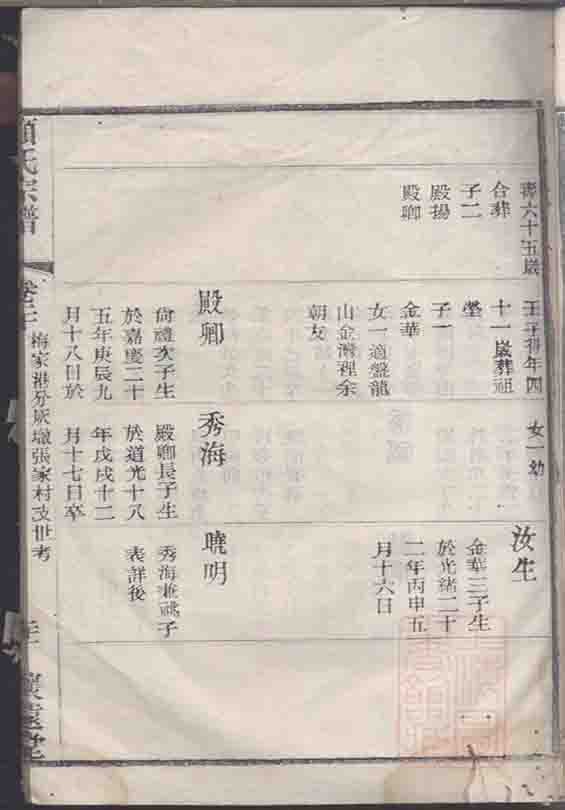 壽六十五歲
合葬
子二
殿揚
殿卿
壬子得年四
十一歲葬祖
塋
子一
金華
女一適盤龍
山金灣裡余
朝友
殿卿
尙禮次子生
於嘉慶二十
五年庚辰九
月十八日於
女一幼
秀海
殿卿長子生
於道光十八
年戊戌十二
月十七日卒
汝生
金華三子生
於光緒二十
二年丙申五
月十六日
曉明
秀海兼祧子
表詳後
氏宗譜
梅家港分張家村支世考